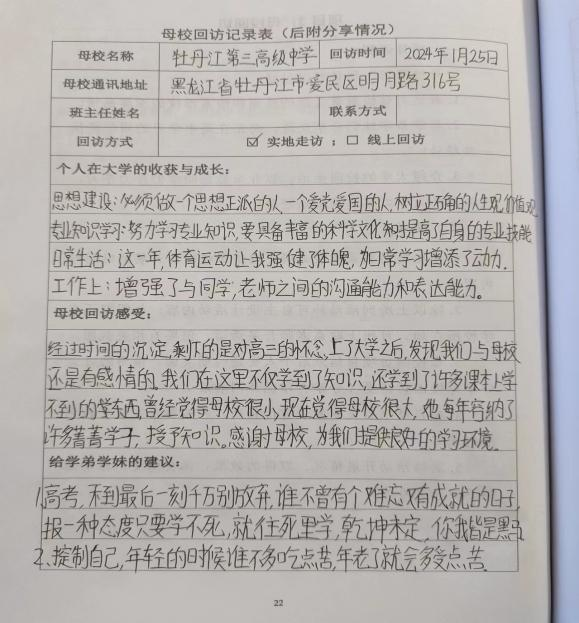 母校回访记录表（后附分享情况）
母校名称 牡丹江第三高级中学 回访时间 2024年1月25日
母校通讯地址 黑龙江省牡丹江市爱民区明月路316号
班主任姓名 联系方式
回访方式 ☑ 实地走访；☐ 线上回访
个人在大学的收获与成长：
思想建设：必须做一个思想正派的人，一个爱党爱国的人，树立正确的人生观，价值观
专业知识学习：努力学习专业知识，要具备丰富的科学文化 提高了自身的专业技能
日常生活：这一年，体育运动让我强健了体魄，为日常学习增添了动力．
工作上：增强了与同学，老师之间的沟通能力和表达能力。
母校回访感受：
经过时间的沉淀，剩下的是对高三的怀念，上了大学之后，发现我们与母校
还是有感情的，我们在这里不仅学到了知识，还学到了许多课本上学
不到的东西，曾经觉得母校很小，现在觉得母校很大，她每年容纳了
许多莘莘学子，授予知识。感谢母校，为我们提供良好的学习环境．
给学弟学妹的建议：
1.高考，不到最后一刻千万别放弃，谁不曾有个难忘又有成就的日子，
报一种态度只要学不死，就往死里学，乾坤未定，你我皆是黑马
2.控制自己，年轻的时候谁不多吃点苦，年老了就会多受点苦．
22